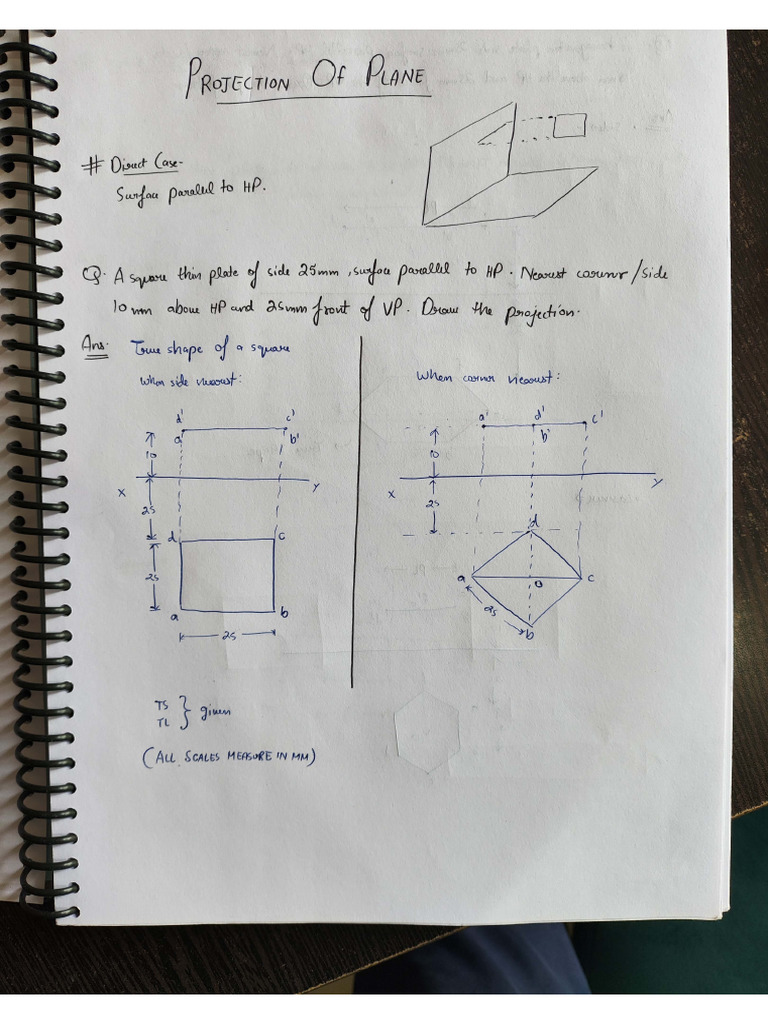 PROJECTION OF PLANE
# Direct Case-
Surface parallel to HP.
Q. A square thin plate of side 25mm, surface parallel to HP. Nearest corner/side
10 mm above HP and 25mm front of VP. Draw the projection.
Ans. True shape of a square
When side nearest:
d' c'
a' b'
10
X Y
25
d c
25
a b
25
When corner nearest:
a' d' c'
b'
10
X Y
25
d
a o c
25
b
TS
TL } given
(ALL SCALES MEASURE IN MM)